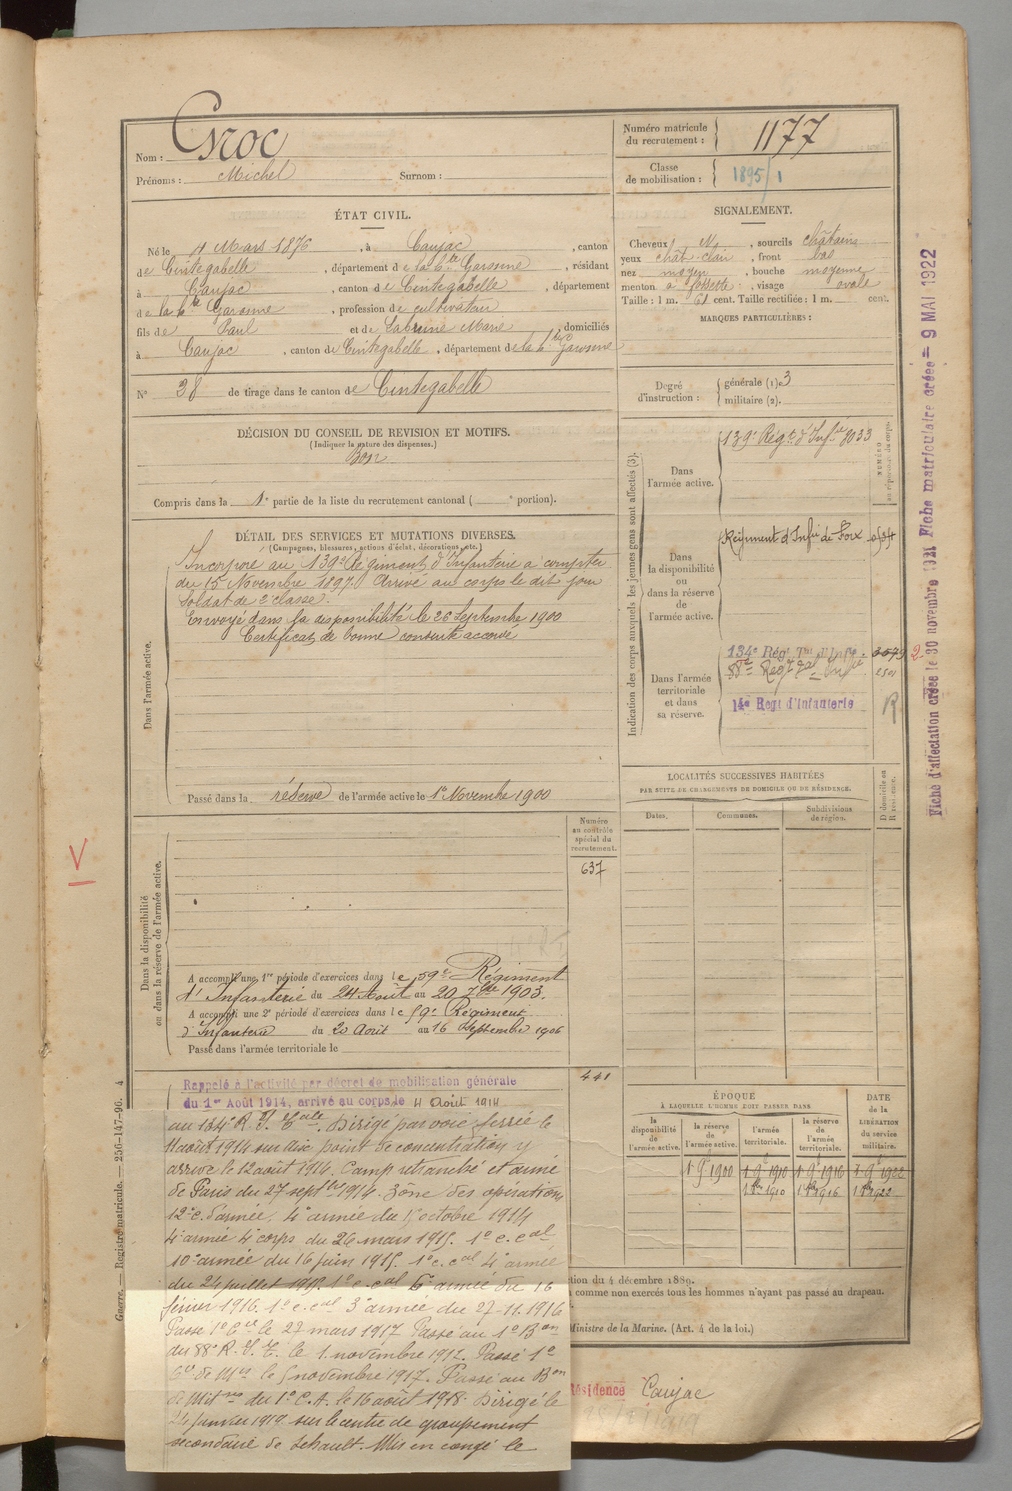 Nom : Croc
Prénoms : Michel Surnom :
Numéro matricule
du recrutement : 1177
Classe
de mobilisation : 1895/1
ÉTAT CIVIL.
Né le 4 Mars 1876, à Caujac, canton
de Cintegabelle, département de la Hte Garonne, résidant
à Caujac, canton de Cintegabelle, département
de la Hte Garonne, profession de cultivateur
fils de Paul et de Marie, domiciliés
à Caujac, canton de Cintegabelle, département de la Hte Garonne
N° 38 de tirage dans le canton de Cintegabelle
DÉCISION DU CONSEIL DE REVISION ET MOTIFS.
(Indiquer la nature des dispenses.)
Bon
Compris dans la 1e partie de la liste du recrutement cantonal ( e portion).
SIGNALEMENT.
Cheveux N, sourcils châtains
yeux chât clair, front bas
nez moyen, bouche moyenne
menton à fossette, visage ovale
Taille : 1 m. 61 cent. Taille rectifiée : 1 m. cent.
MARQUES PARTICULIÈRES :
Degré
d'instruction :
générale (1) 3
militaire (2).
Indication des corps auxquels les jeunes gens sont affectés (3).
NUMÉRO
au répertoire du corps.
Dans
l'armée active.
139e Régt d'Infie 8033
Dans
la disponibilité
ou
dans la réserve
de
l'armée active.
Régiment d'Infie de Foix
Dans l'armée
territoriale
et dans
sa réserve.
134e Rég. Tal d'Infie 3579 2
88e Régt Tal Infie 2501
14e Regt d'Infanterie R
DÉTAIL DES SERVICES ET MUTATIONS DIVERSES.
(Campagnes, blessures, actions d'éclat, décorations, etc.)
Dans l'armée active.
Incorporé au 139e Régiment d'Infanterie à compter
du 15 Novembre 1897. Arrivé au corps le dit jour
Soldat de 2e classe.
Envoyé dans la disponibilité le 26 Septembre 1900
Certificat de bonne conduite accordé
Passé dans la réserve de l'armée active le 1er Novembre 1900
LOCALITÉS SUCCESSIVES HABITÉES
PAR SUITE DE CHANGEMENTS DE DOMICILE OU DE RÉSIDENCE.
Dates. Communes. Subdivisions
de région.
D domicile ou
R résidence.
Numéro
au contrôle
spécial du
recrutement.
637
Dans la disponibilité
ou dans la réserve de l'armée active.
A accompli une 1re période d'exercices dans le 59e Régiment
d'Infanterie du 24 Août au 20 7bre 1903.
A accompli une 2e période d'exercices dans le 59e Régiment
d'Infanterie du 20 Août au 16 Septembre 1906
Passé dans l'armée territoriale le
441
Rappelé à l'activité par décret de mobilisation générale
du 1er Août 1914, arrivé au corps le 4 Août 1914
au 134e R. I. Tale. Dirigé par voie ferrée le
11 août 1914 sur dix point de concentration y
arrive le 12 août 1914. Camp retranché et armée
de Paris du 27 septbre 1914. Zône des opérations
12e c. d'armée, 4e armée du 15 octobre 1914
4e armée 4e corps du 26 mars 1915. 1e c. cal
10e armée du 16 juin 1915. 1e c. cal 4e armée
du 24 juillet 1915. 1e c. cal 6e armée du 16
février 1916. 1e c. cal 3e armée du 27-11.1916
Passé 1e Cie le 27 mars 1917 Passé au 1e Bon
du 88e R. I. T. le 1 novembre 1917. Passé 1e
Cie de Mses le 5 novembre 1917. Passé au Bon
de Mitres du 1e C. A. le 16 août 1918. Dirigé le
24 janvier 1919 sur le centre de groupement
secondaire de Lehault. Mis en congé le
ÉPOQUE
À LAQUELLE L'HOMME DOIT PASSER DANS
DATE
de la
LIBÉRATION
du service
militaire.
la
disponibilité
de
l'armée active.
la réserve
de
l'armée active.
l'armée
territoriale.
la réserve
de
l'armée
territoriale.
1 9e 1900 1 9e 1910 1 9e 1916 1 9e 1922
1 8bre 1910 1 8bre 1916 1 8bre 1922
tion du 4 décembre 1889.
comme non exercés tous les hommes n'ayant pas passé au drapeau.
Ministre de la Marine. (Art. 4 de la loi.)
Résidence Caujac
Guerre. — Registre matricule. — 256-147-96. 4
V
Fiche d'affectation créée le 30 novembre 1921 Fiche matriculaire créée = 9 MAI 1922